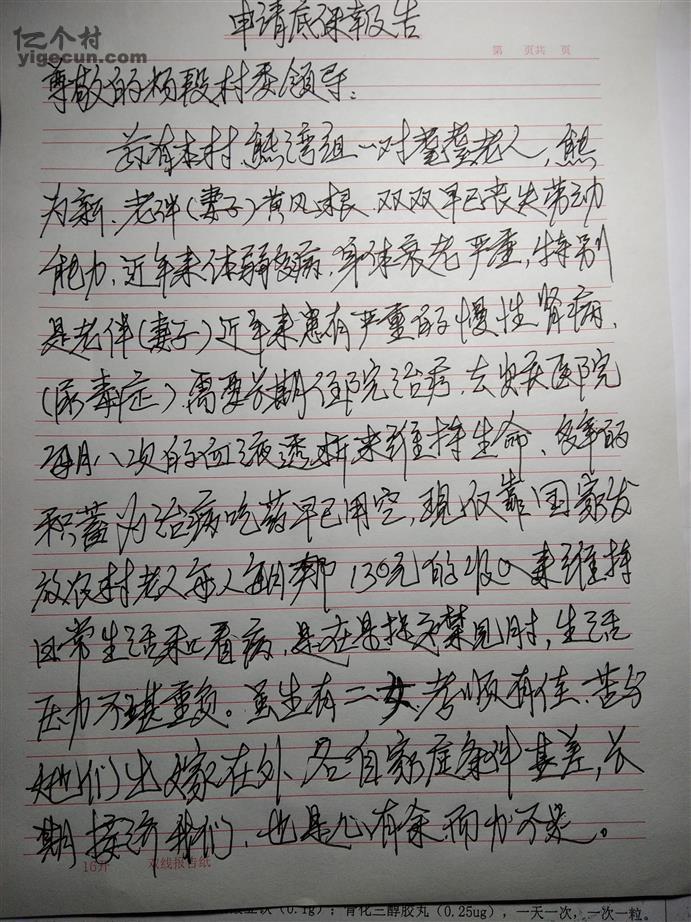 亿个村
yigecun.com
第 页共 页
申请底保报告
尊敬的杨段村委领导：
兹有本村熊湾组一对耄耋老人，熊
为新、老伴（妻子）黄凤根双双早已丧失劳动
能力，近年来体弱多病，身体衰老严重，特别
是老伴（妻子）近年来患有严重的慢性肾病，
（尿毒症）需要长期住院治疗，去医院
每月八次的血液透析来维持生命，多年的
积蓄为治病吃药早已用空，现仅靠国家发
放农村老人每人每月130元的收入来维持
日常生活和看病，是在是捉襟见肘，生活
压力不堪重负。虽生有二女，孝顺有佳，苦与
她们出嫁在外、各自家庭条件甚差，长
期接济我们，也是心有余而力不足。
16开 双线报告纸
（0.1g）；骨化三醇胶丸（0.25ug），一天一次，一次一粒。